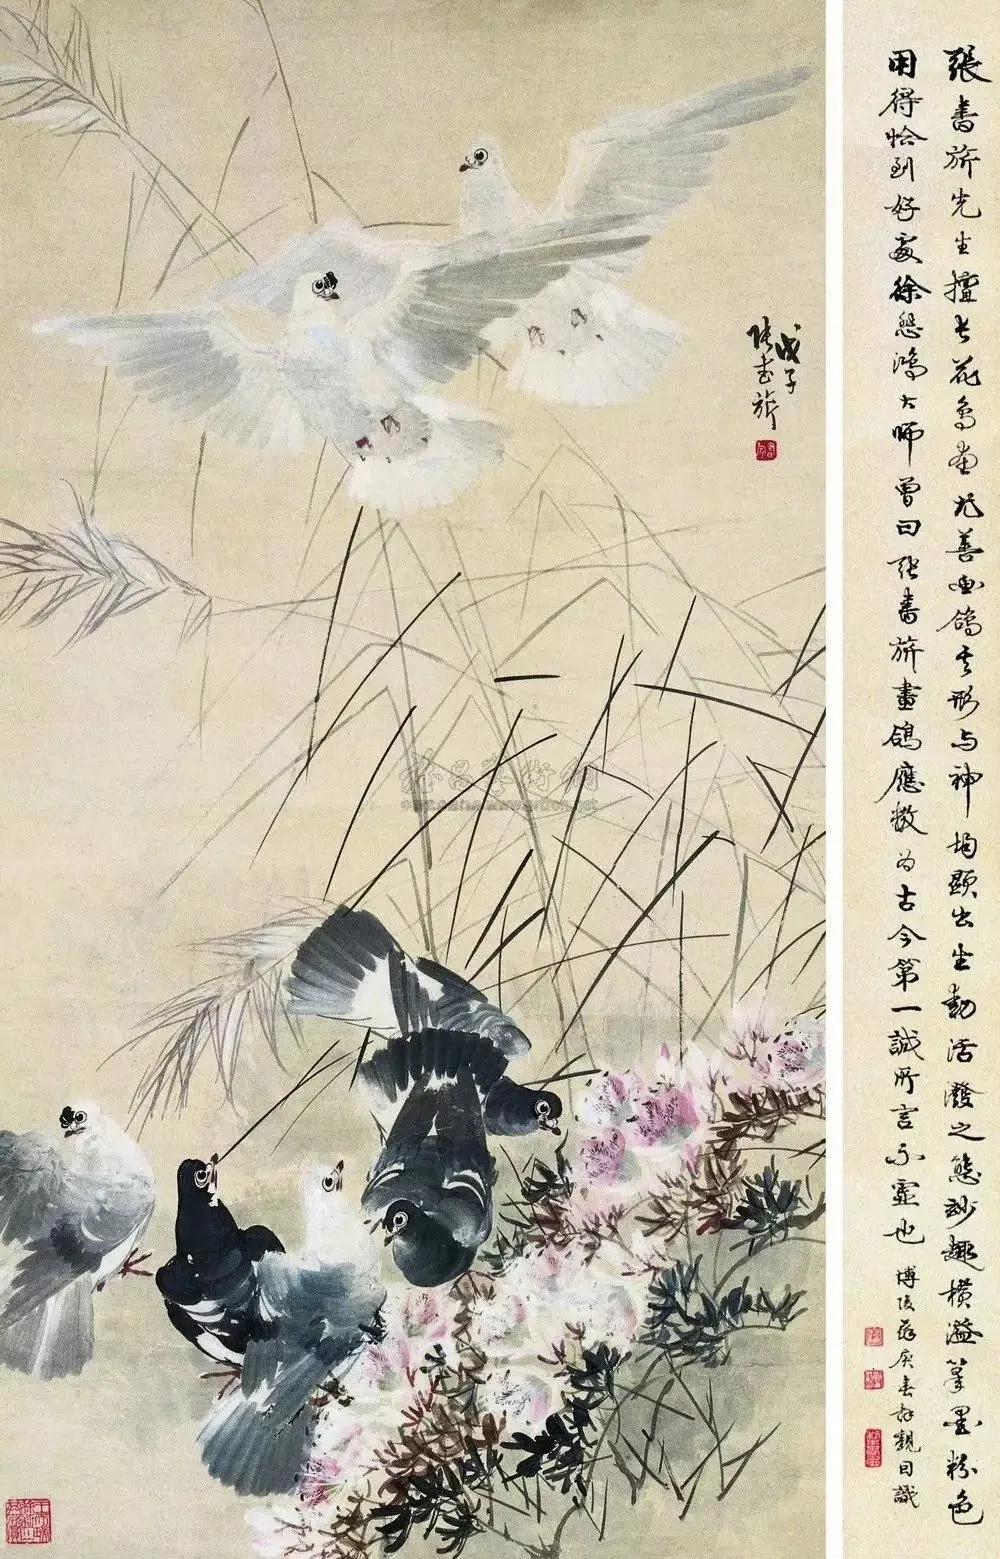 張書旂先生擅長花鳥畫尤善画鴿其形与神均顯出生動活潑之態妙趣橫溢筆墨粉色
用得恰到好處徐悲鴻大師曾曰張書旂畫鴿應數为古今第一誠所言不虛也 博陵
戊子
張書旂